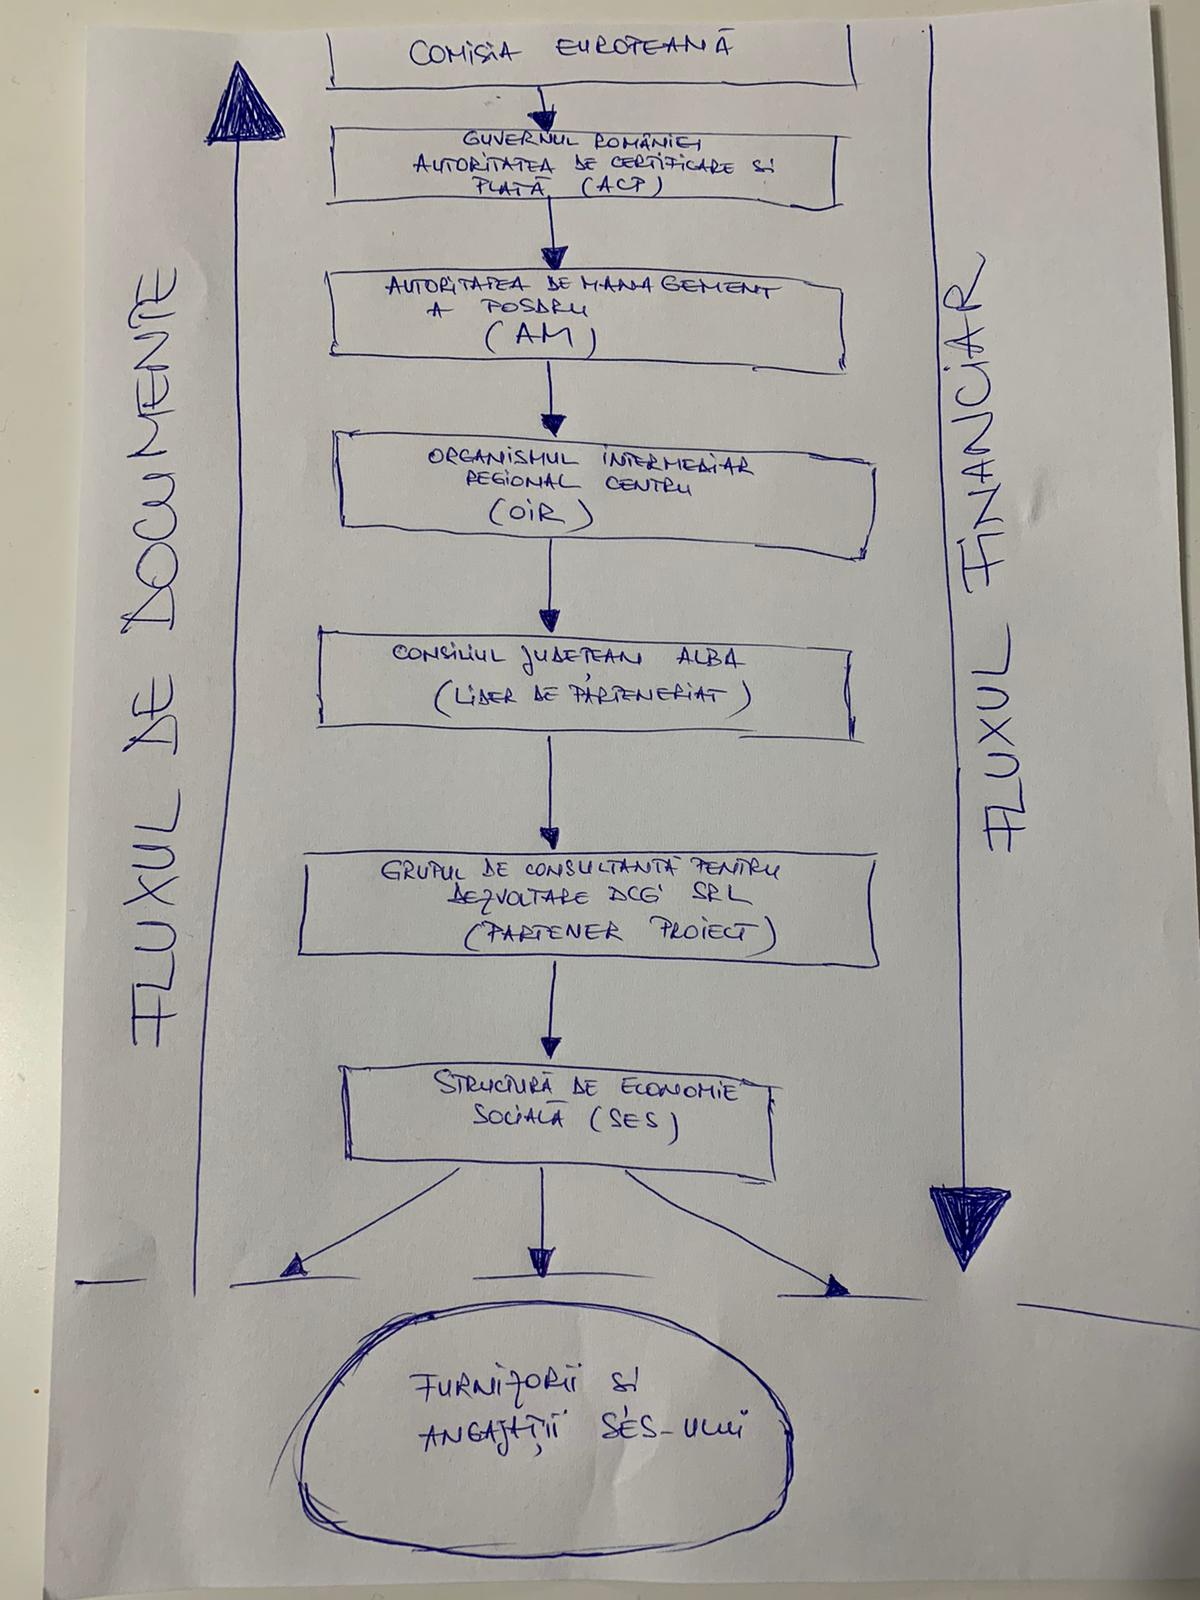 COMISIA EUROPEANĂ
GUVERNUL ROMÂNIEI
AUTORITATEA DE CERTIFICARE SI
PLATĂ (ACP)
AUTORITATEA DE MANAGEMENT
A POSDRU
(AM)
ORGANISMUL INTERMEDIAR
REGIONAL CENTRU
(OIR)
CONSILIUL JUDEȚEAN ALBA
(LIDER DE PARTENERIAT)
GRUPUL DE CONSULTANTĂ PENTRU
DEZVOLTARE DCG SRL
(PARTENER PROIECT)
STRUCTURĂ DE ECONOMIE
SOCIALĂ (SES)
FURNIZORII SI
ANGAJAȚII SES-ULUI
FLUXUL DE DOCUMENTE
FLUXUL FINANCIAR